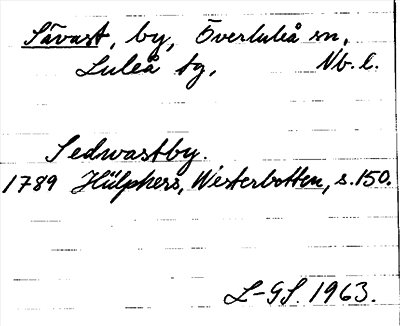 Sävast, by, Överluleå sn,
Luleå tg, Nb. l.
Sedwastby.
1789 Hülphers, Westerbotten, s. 150.
L-GS. 1963.